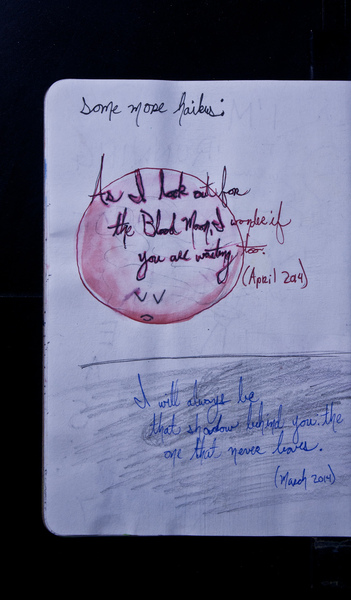 Some more haikus:
As I look out for
the Blood Moon, I wonder if
you are waiting too.
(April 2014)
I will always be
that shadow behind you. the
one that never leaves.
(March 2014)